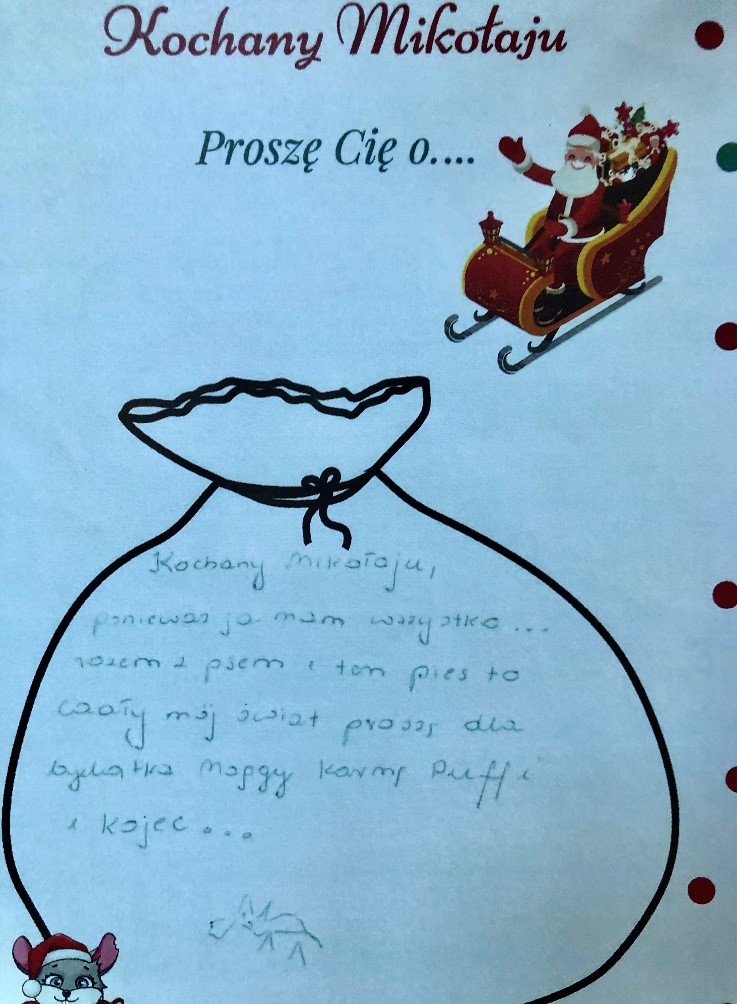 Kochany Mikołaju
Proszę Cię o....
Kochany Mikołaju,
ponieważ ja mam wszystko...
razem z psem i ten pies to
cały mój świat proszę dla
Maggy karmę Puffi
i kojec...